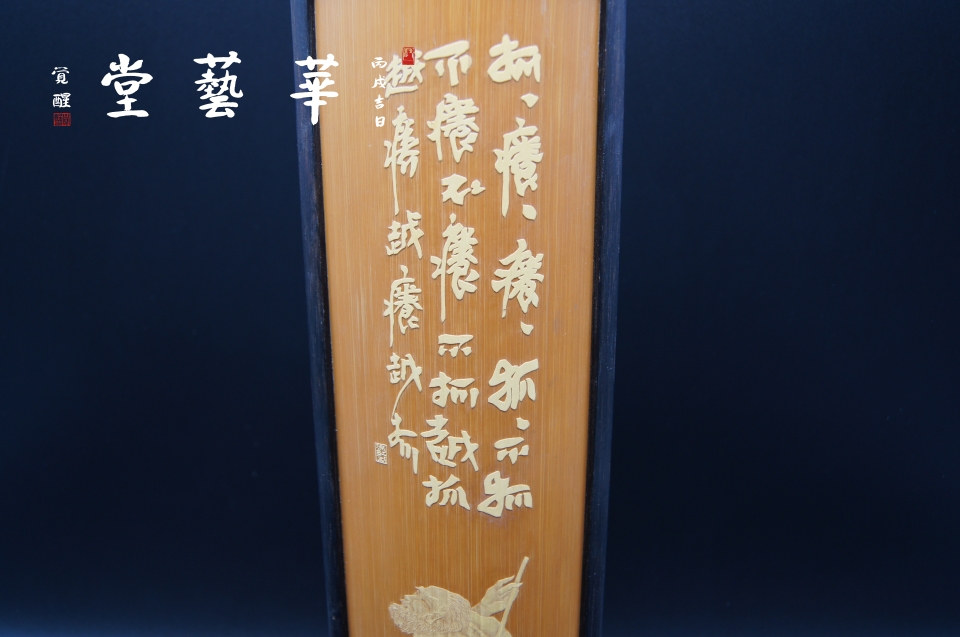 抓、癢、癢、抓、不抓
不癢不癢不抓越抓
越癢越癢越抓
丙戌吉日
華藝堂
覚醒